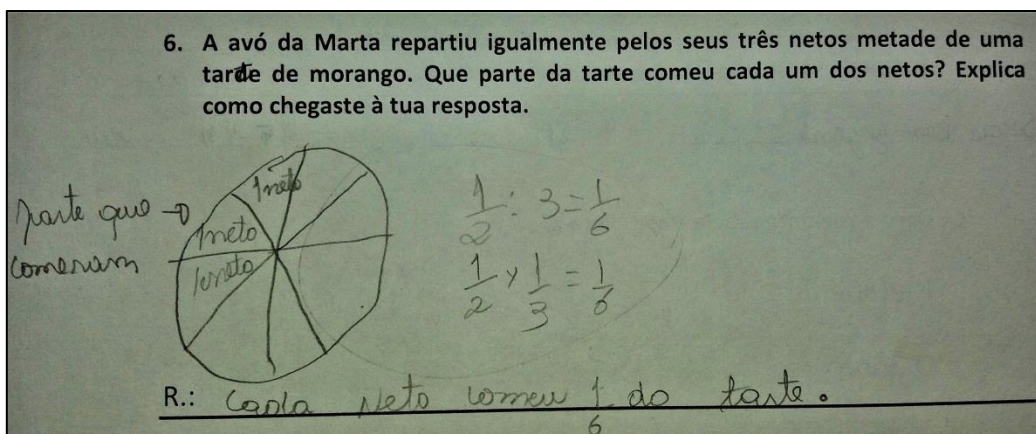 6. A avó da Marta repartiu igualmente pelos seus três netos metade de uma
tarte de morango. Que parte da tarte comeu cada um dos netos? Explica
como chegaste à tua resposta.
1 neto
parte que →
1 neto
comeram
1 neto
1/2 : 3 = 1/6
1/2 × 1/3 = 1/6
R.: Cada neto comeu 1/6 do tarte.